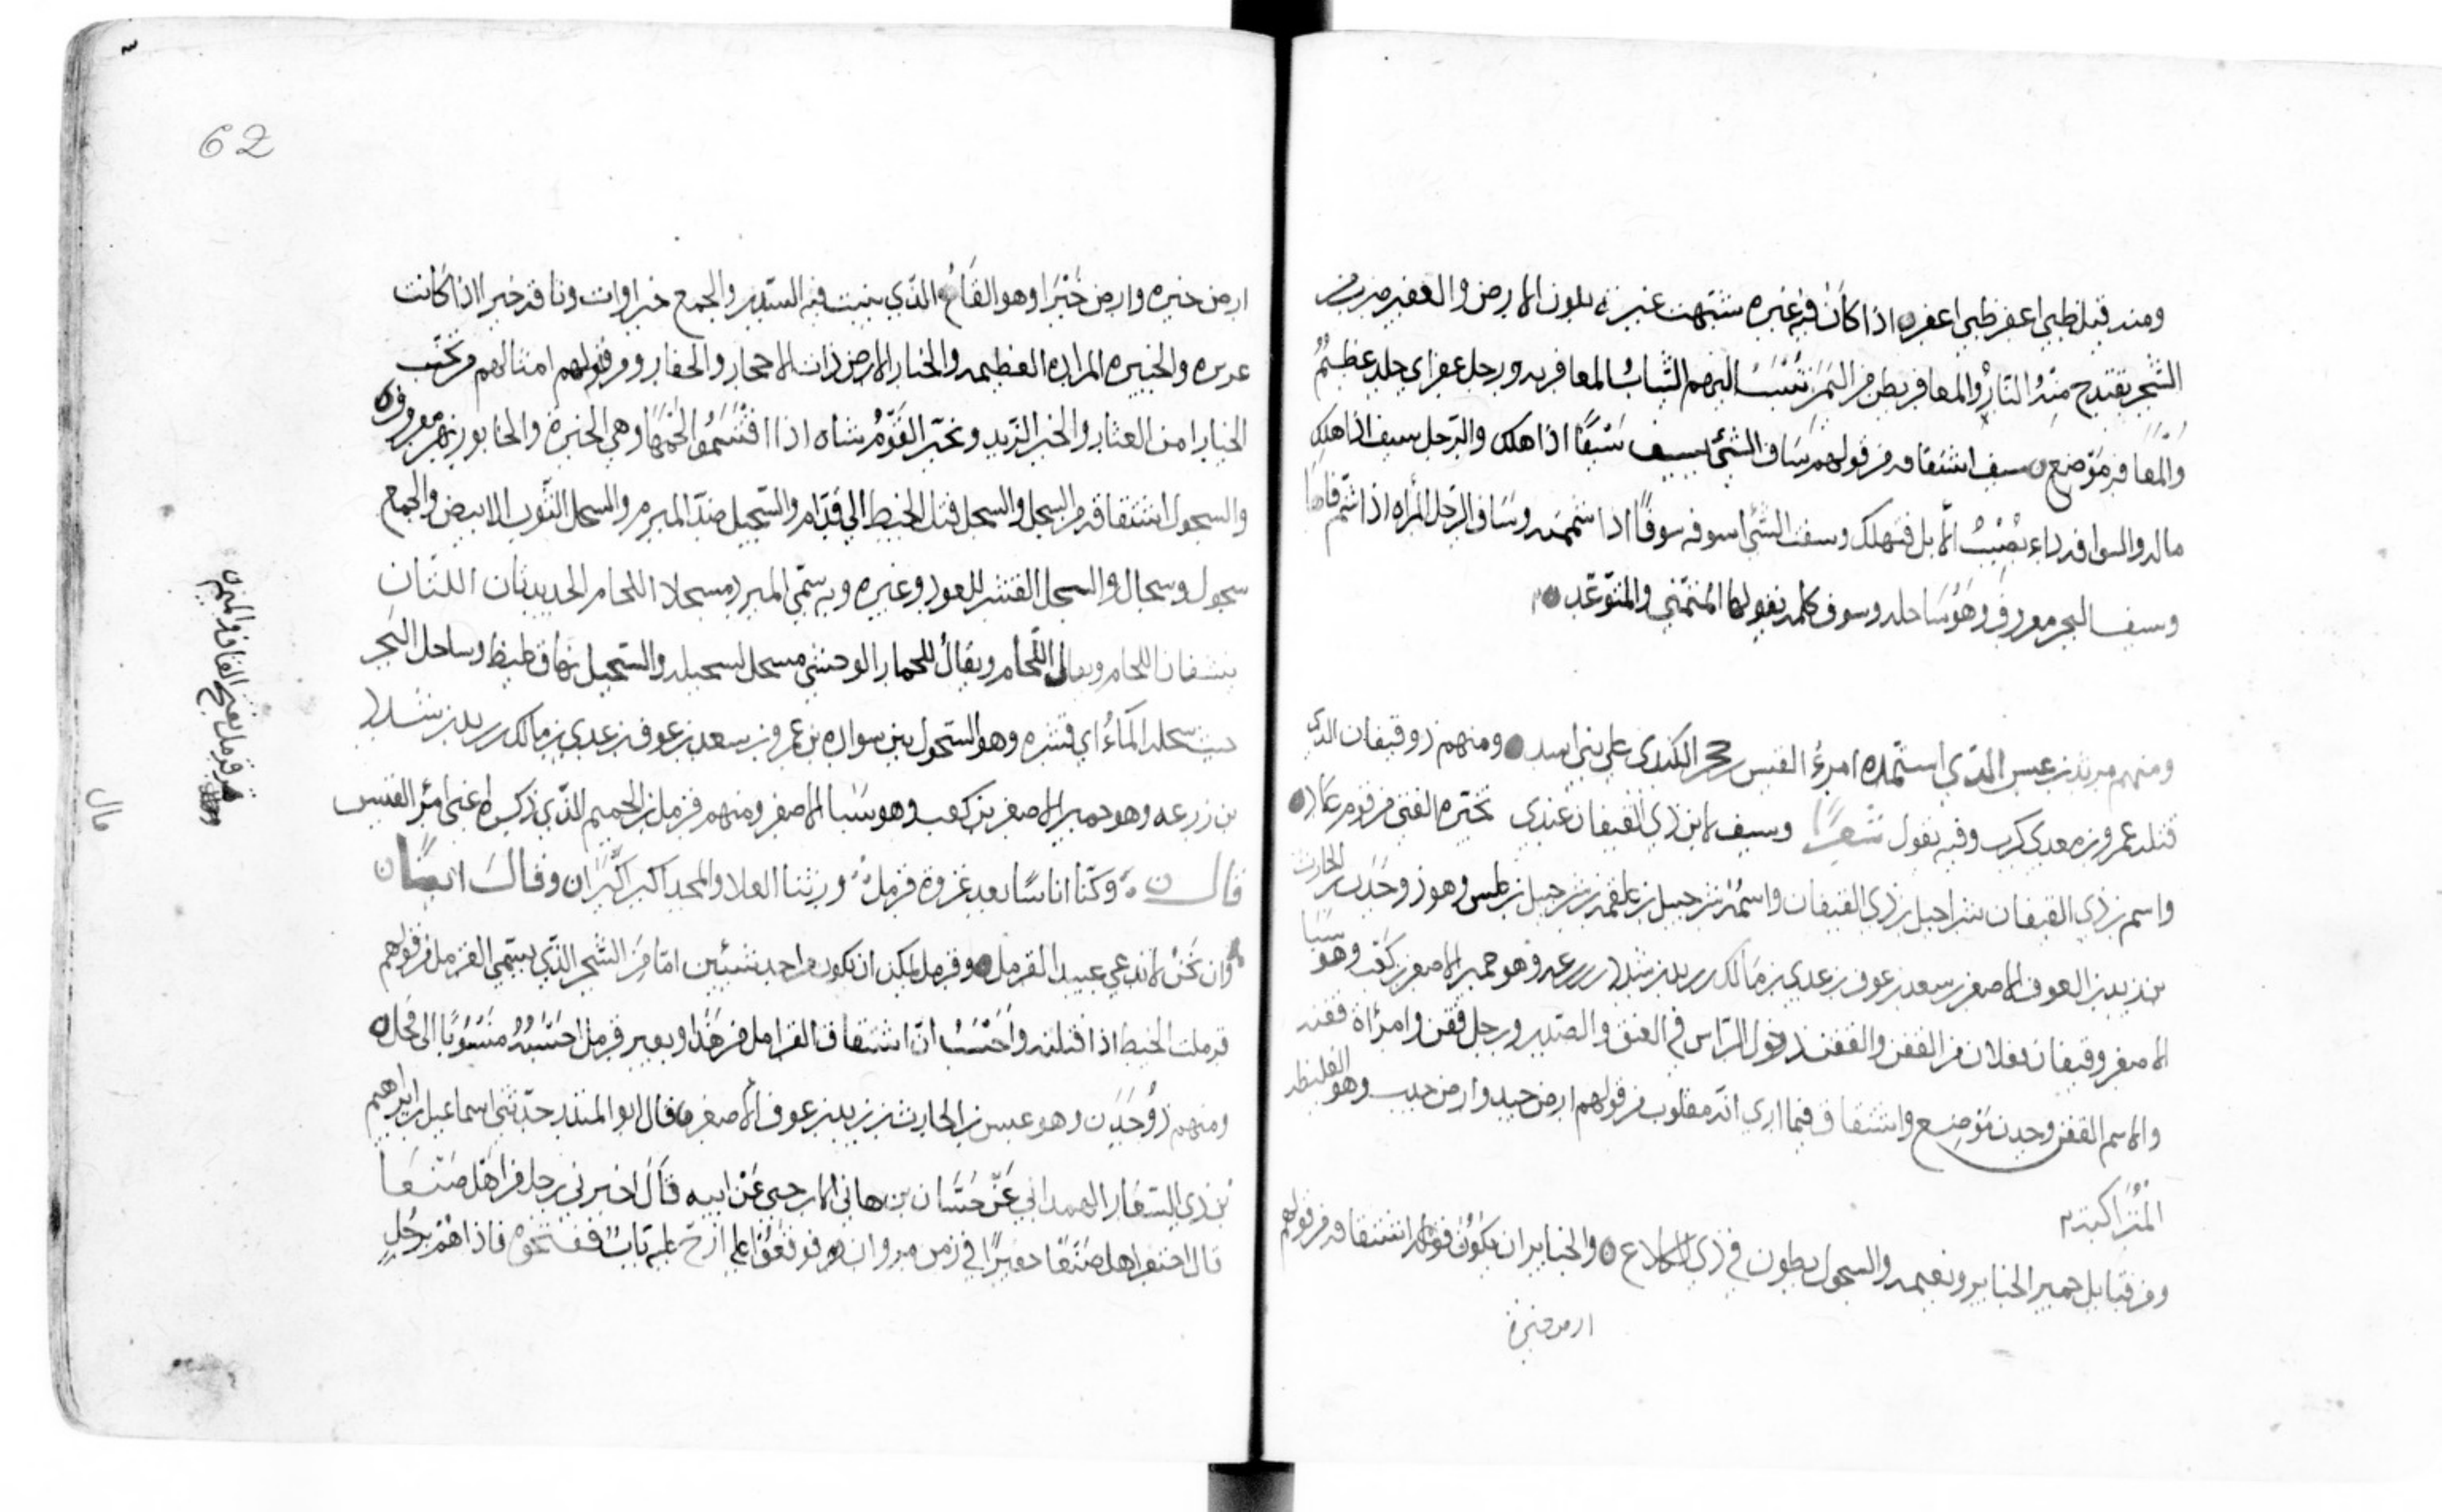 ومنه قيل ظبي اعفر ظبي اعفر اذا كان فيه غبره شبهت غبرته بلون الارض والعفير ضرب من
الشجر يقتدح منه النار والمعافر بطن من اليمن تنسب اليهم الثياب المعافريه ورجل عفر اي جلد عظيم
والمعافر موضع سيف اشتقاقه من قولهم ساف الشيء يسيف سيفا اذا هلك والرجل سيف اذا هلك
ماله والسواف داء يصيب الابل فتهلك وسفت الشي اسوفه سوفا اذا شممته وساف الرجل المراه اذا شم فاها
وسيف البحر معروف وهو ساحله وسوف كلمه يقولها المتمني والمتوعد
ومنهم مرثد بن عبس الذي استمده امرؤ القيس بن حجر الكندي على بني اسد ومنهم ذو قيفان الذي
قتله عمرو بن معدي كرب وفيه يقول شعرا وسيف لابن ذي القيفان عندي تخيره الفتى من قوم عاد
واسم بن ذي القيفان شراحيل بن ذي القيفان واسمه شرحبيل بن علقمه بن شرحبيل بن علس وهو ذو جدن بن الحارث
بن زيد بن العوف الاصغر بن سعد بن عوف بن عدي بن مالك بن زيد بن شدد بن زرعه وهو حمير الاصغر بن كعب وهو سبا
الاصغر وقيفان فعلان من القفن والقفن دخول الراس في العنق والصدر ورجل قفن وامراة قفنه
والاسم القفن وجدن موضع واشتقاق فيما ارى انه مقلوب من قولهم ارض جيد وارض جدب وهو الغليظه
المتراكبه
ومن قبايل حمير الخباير ونعيمه والسحول بطون في ذي الكلاع والخباير ان يكون فعايل اشتقاقه من قولهم
ارض خبرة
62
ارض خبره وارض خبرا وهو القاع الذي ينبت فيه السدر والجمع خبراوات وناقه خبرا اذا كانت
غزيره والخبيره المزاده العظيمه والخبار الارض ذات الاحجار والحفار ومن قولهم امثالهم من تجنب
الخبار امن العثار والخبر الزبد وتخبر القوم شاه اذا اقتسموا لحمها وهي الخبرة والخابور نهر معروف
والسحول اشتقاقه من السحل والسحل فتل الخيط الى قدام والسحيل ضد المبرم والسحل الثوب الابيض والجمع
سحول وسحال والسحل القشر للعود وغيره وبه سمي المبرد مسحلا اللجام الحديدتان اللتان
يكتنفان اللجام ويقال اللجام ويقال للحمار الوحشي مسحل لسحيله والسحيل نهاق غليظ وساحل البحر
حيث سحله الماء اي قشره وهو السحول بن سواده بن عمرو بن سعد بن عوف بن عدي بن مالك بن زيد بن شدد
بن زرعه وهو حمير الاصغر بن كعب وهو سبا الاصغر ومنهم قرمل بن الحميم الذي ذكره اعني امرؤ القيس
قال وكنا اناسا بعد غزوة قرمل ورثنا العلا والمجد اكبر اكبرا وقال ايضا
وان نحن لا ندعي عبيدا لقرمل وقرمل يمكن ان يكون من احد شيئين اما من الشجر الذي يسمى القرمل من قولهم
قرملت الخيط اذا فتلته واحسب ان اشتقاق القرامل من هذا وبعير قرمل احسبه منسوبا الى فحل
ومنهم ذو جدن وهو عبس بن الحارث بن زيد بن عوف الاصغر قال ابو المنذر حدثني اسماعيل بن ابراهيم
بن ذي الشعار الهمداني عن حسان بن هاني الارحبي عن ابيه قال اخبرني رجل من اهل صنعا
قال احتفر اهل صنعا حفيرا في زمن مروان فوقعوا على ازج عليه باب ففتحوه فاذا هم برجل
قرمل بفتح القاف والميم
مال